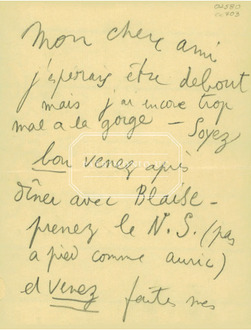 Mon cher ami
j'espérais être debout
mais j'ai encore trop
mal a la gorge – Soyez
bon venez après
dîner avec Blaise –
prenez le N.S. (pas
a pied comme auric)
et venez faites mes